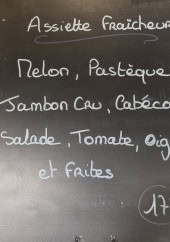 Assiette Fraîcheur
Melon, Pastèque
Jambon Cru, Cabéco
Salade, Tomate, Oig
et Frites
17